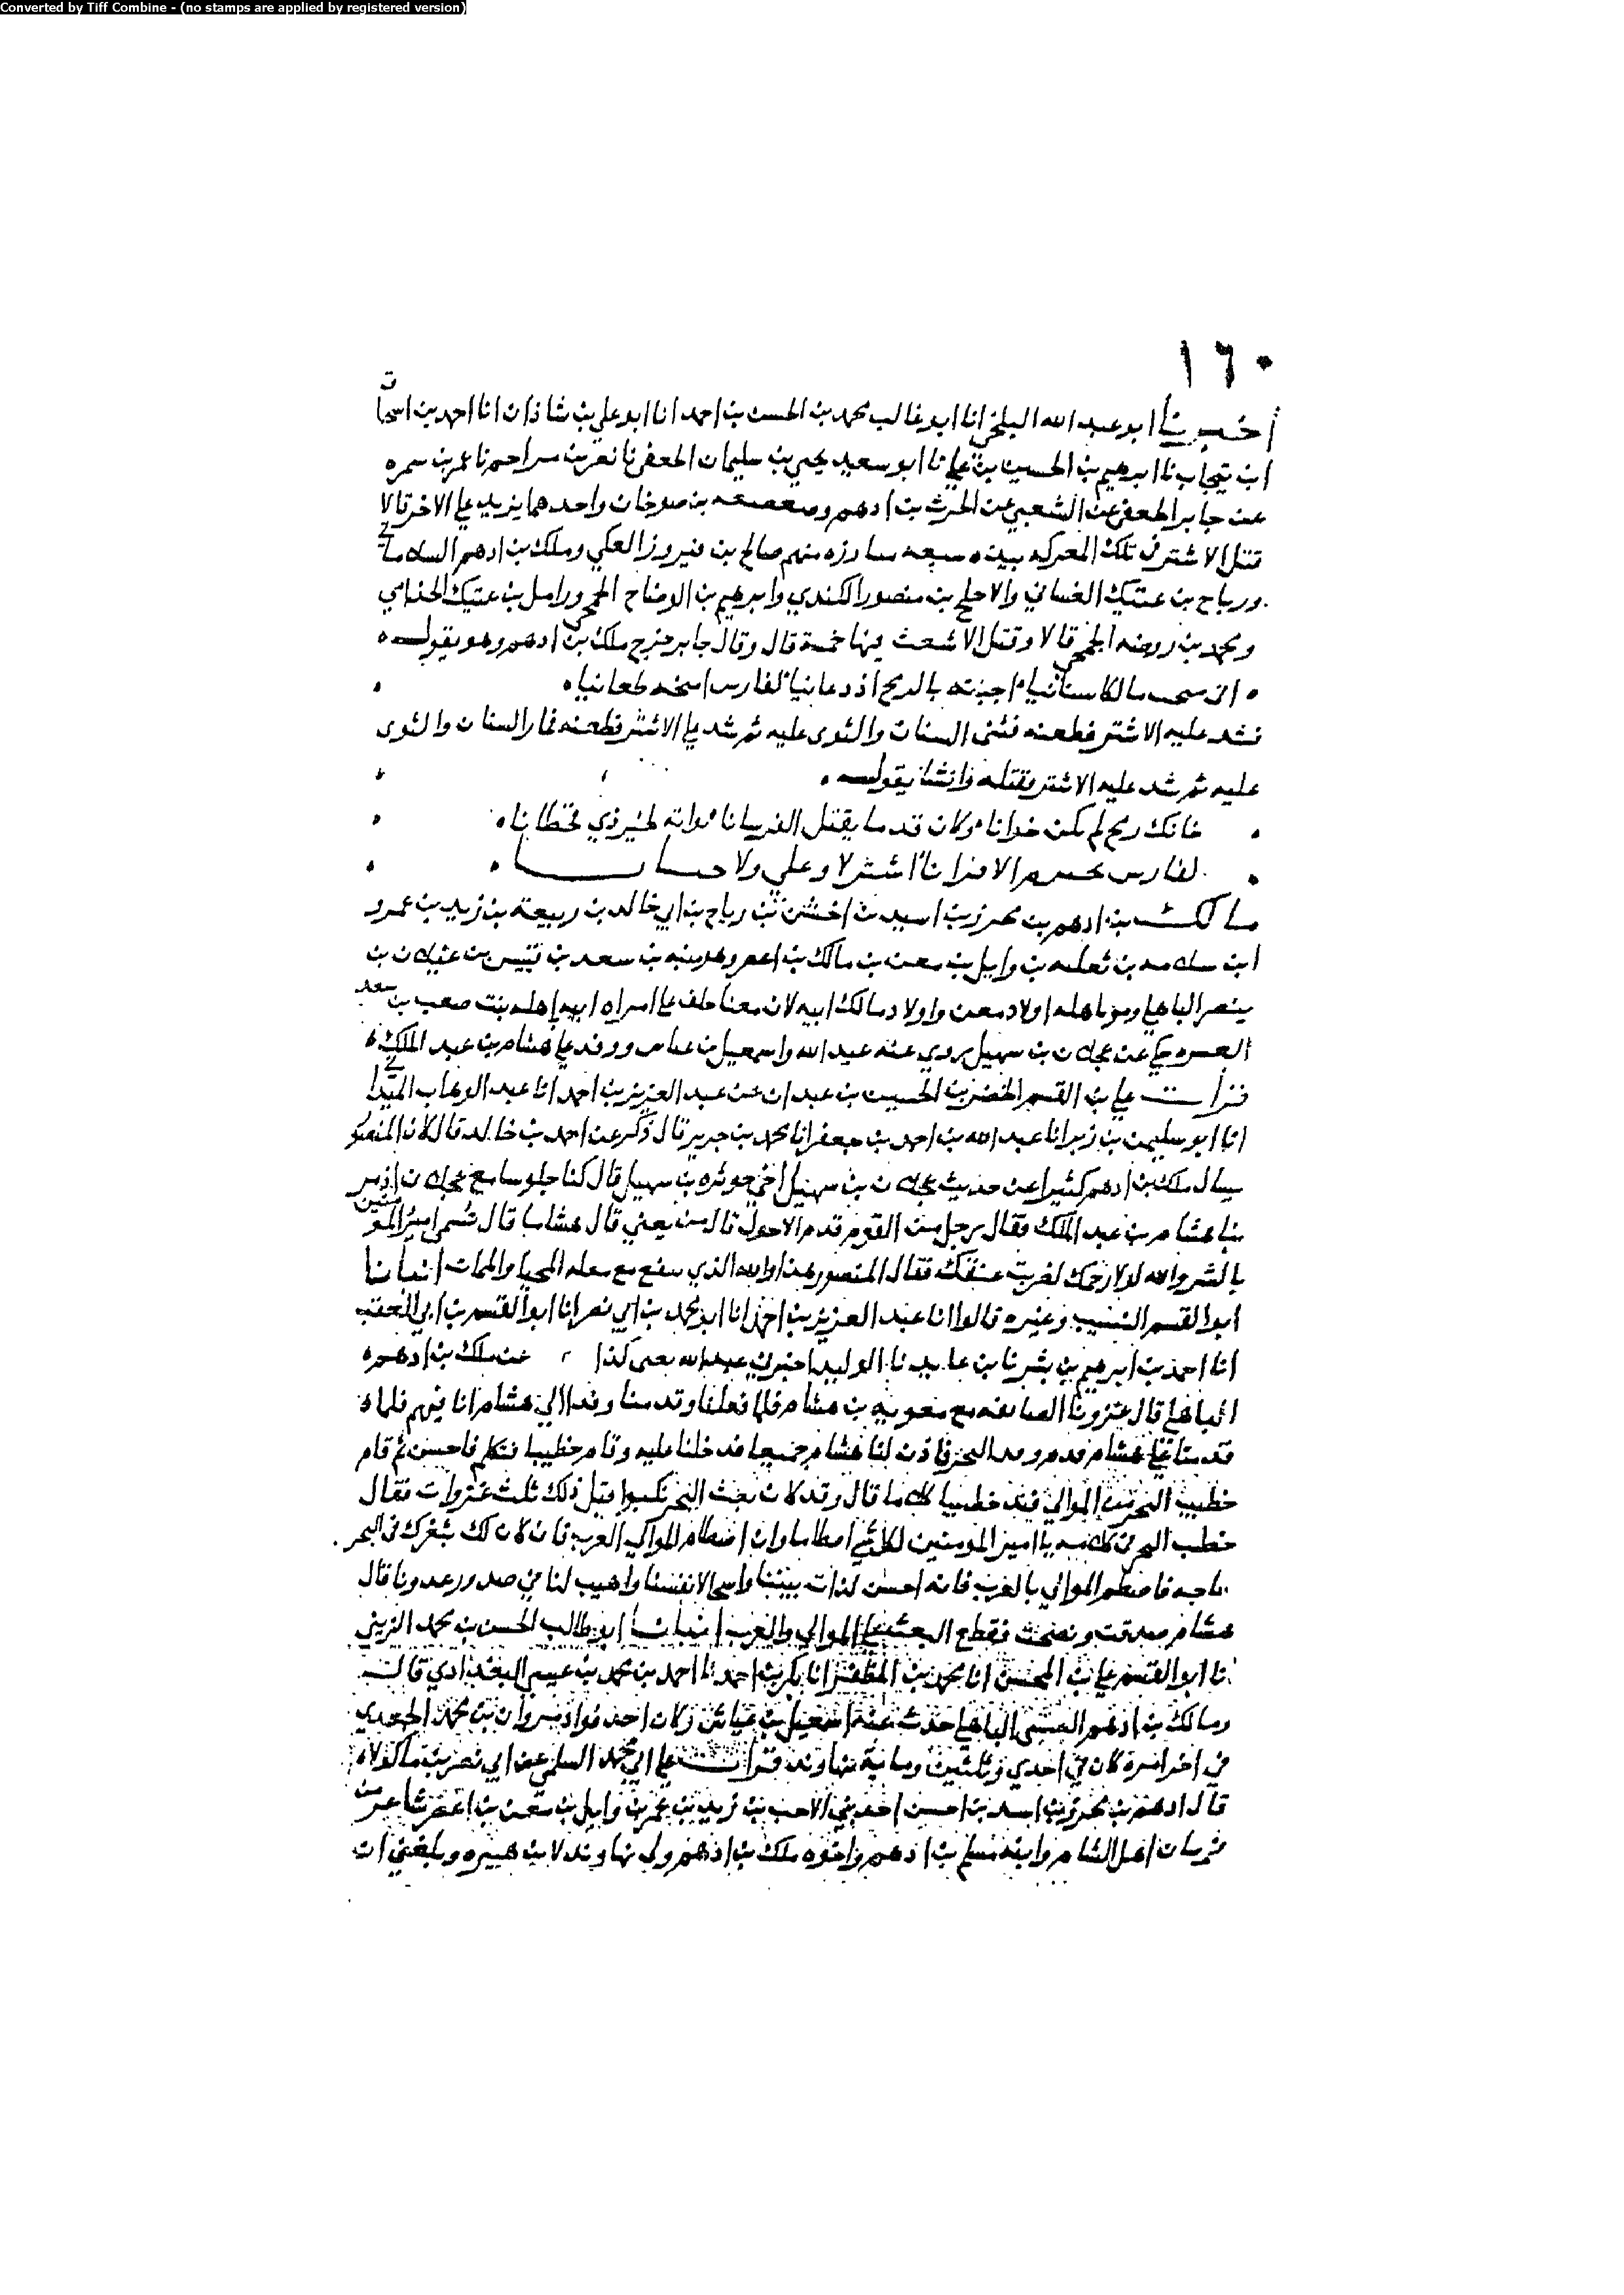 Converted by Tiff Combine - (no stamps are applied by registered version)
١٦٠
اخبرنا ابو عبد الله البلخي انا ابو غالب محمد بن الحسن بن احمد انا ابو علي بن شاذان انا احمد بن اسحاق
ابن نيخاب نا ابرهيم بن الحسين بن علي نا ابو سعيد يحيى بن سليمان الجعفي نا نصر بن مزاحم نا عمر بن سعد
عن جابر الجعفي عن الشعبي عن الحرث بن ادهم وصعصعه بن صوحان واحدهما يزيد على الاخر قالا
قتل الاشتر في تلك المعركه بيده سبعه مبارزه منهم صالح بن فيروز العكي وملك بن ادهم السلاماني
ورياح بن عتيك الغساني والاجلح بن منصور الكندي وابرهيم بن الوضاح الجمحي وزامل بن عتيك الجذامي
ومحمد بن روضه الجمحي قالا وقتل الاشعث فيها خمسة قال وقال جابر خرج ملك بن ادهم وهو يقول
اجبته بالرمح اذ دعانيا لفارس امنحه طعانيا
فشد عليه الاشتر فطعنه فثنى السنان والتوى عليه ثم شد على الاشتر فطعنه فمار السنان والتوى
عليه ثم شد عليه الاشتر فقتله وانشا يقول
خانك رمح لم يكن خوانا وكان قدما يقتل الفرسانا لخير ذي قحطانا
لفارس يخترم الاقرانا اشتر لا وغلا ولا جبانا
مالك بن ادهم بن محرز بن اسيد بن اخشن بن رياح بن ابي خالد بن ربيعة بن زيد بن عمرو
ابن سلامه بن ثعلبه بن وايل بن معن بن مالك بن اعصر وهو منبه بن سعد بن قيس بن عيلان بن
مضر الباهلي وبنو باهله اولاد معن واولاد مالك ابيه لان معنا خلف على امراه ابيه باهله بنت صعب بن سعد
العشيره حكى عن عجلان بن سهيل روى عنه عبد الله واسمعيل بن عياش ووفد على هشام بن عبد الملك
قرات علي بن القسم الخضر بن الحسين بن عبدان عن عبد العزيز بن احمد انا عبد الوهاب الميداني
انا ابو سليمن بن زبر انا عبد الله بن احمد بن جعفر انا محمد بن جرير قال ذكر عن احمد بن خالد قال كان المنصور
يسال ملك بن ادهم كثيرا عن حديث عجلان بن سهيل اخي حوثره بن سهيل قال كنا جلوسا مع عجلان اذ مر
بنا هشام بن عبد الملك فقال رجل من القوم قد مر الاحول قال من يعني قال هشاما قال تسمي امير المومنين
بالنبز والله لولا رحمك لضربت عنقك فقال المنصور هذا والله الذي ينفع مع مثله المحيا والممات انبانا
ابو القسم النسيب وغيره قالوا انا عبد العزيز بن احمد انا ابو محمد بن ابي نصر انا ابو القسم بن ابي العقب
انا احمد بن ابرهيم بن بشر نا بن عايذ نا الوليد اخبرني عبد الله يعني كذا عن ملك بن ادهم
الباهلي قال غزونا الصائفه مع معويه بن هشام فلما قفلنا وقدمنا وفدا الى هشام انا فيهم فلما
قدمنا على هشام قدم وفد البحر فاذن لنا هشام جميعا فدخلنا عليه وقام خطيبنا فتكلم فاحسن ثم قام
خطيب البحر من الموالي ما قال وقد كان بعث البحر نكبوا قبل ذلك ثلث غزوات فقال
خطيب البحر في كلامه يا امير المومنين العرب فان كان لك بثغرك في البحر
حاجه فاضطم الموالي بالعرب فانه احسن لذات بيننا واهيب لنا في صدور عدونا قال
هشام صدقت ونصحت فقطع البعث على الموالي والعرب انبانا ابو طالب الحسن بن محمد الزينبي
انا ابو القسم علي بن المحسن انا محمد بن المظفر انا بكر بن احمد نا احمد بن محمد بن عيسى البغدادي قال
ومالك بن ادهم الباهلي حدث عنه اسمعيل بن عياش وكان احد قواد مروان بن محمد الجعدي
في اخر امره كان في احدى وثلثين ومائة بنهاوند قرات على ابي محمد السلمي عن ابي نصر بن ماكولا
قال ادهم بن محرز بن اسيد بن اخشن احد بني الاحب بن زيد بن عمر بن وايل بن معن بن اعصر شاعر من
فرسان اهل الشام وابنه مسلم بن ادهم واخوه ملك بن ادهم ولي نهاوند لابن هبيره وبلغني ان